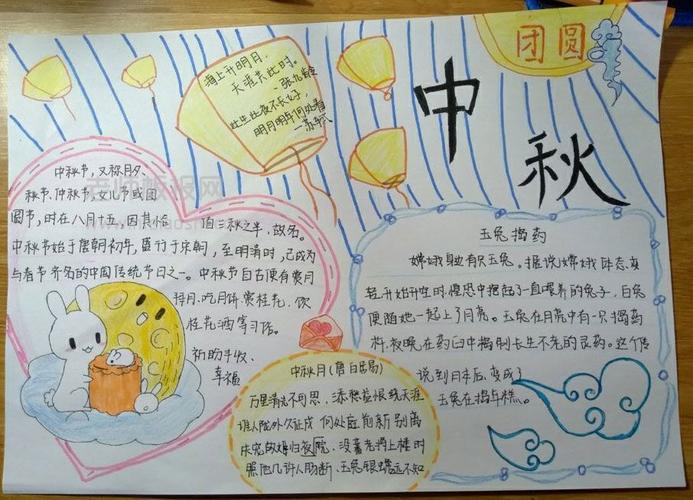 团圆
中秋
海上升明月,
天涯共此时。
此生此夜不长好,
明月明年何处看
中秋节,又称月夕、
秋节、仲秋节、女儿节或团
圆节,时在八月十五,因其恰 值三秋之半,故名。
中秋节始于唐朝初年,盛行于宋朝,至明清时,已成为
与春节齐名的中国传统节日之一。中秋节自古便有赏月
拜月、吃月饼、赏桂花、饮
桂花酒等习俗。
祈盼丰收、
幸福
玉兔捣药
嫦娥身边有只玉兔。据说嫦娥身体变
轻,开始升空时,惶恐中抱起了一直喂养的兔子,白兔
便随她一起上了月亮。玉兔在月亮中有一只捣药
杵,夜晚在药臼中捣制长生不老的灵药。这个传
说到日本后,变成了
玉兔在捣年糕。
中秋月(唐白居易)
万里清光不可思,添愁益恨绕天涯
谁人陇外久征戍 何处庭前新别离
失宠故姬归夜院,没蕃老将上楼时
照他几许人肠断,玉兔银蟾远不知